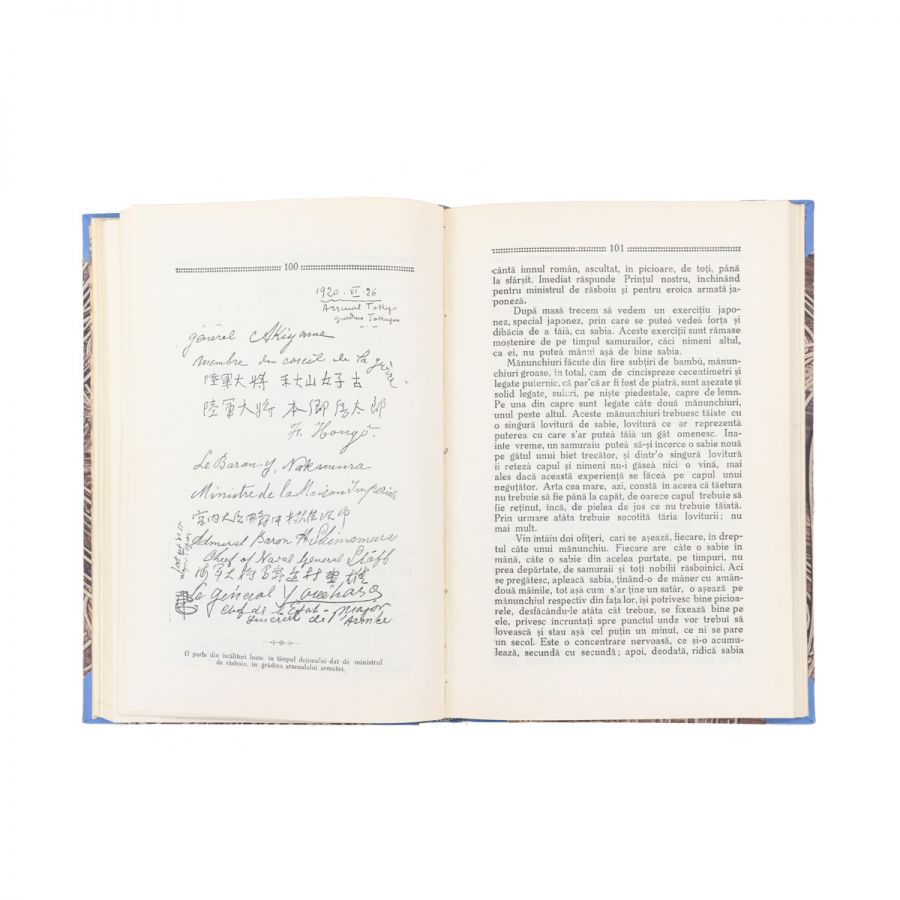 100
1920. VI. 26.
Arsenal Tokyo
général Akiyama
membre du conseil de la
陸軍大將 秋山好古
陸軍大將 本鄉房太郎
F. Hongō.
Le Baron Y. Nakamura
Ministre de la Maison Impériale
宮内大臣
Admiral Baron H. Shimamura
Chief of Naval General Staff
海軍大將
Le général
chef de L'Etat-Major
Général de Armée
O parte din iscălituri luate în timpul dejunului dat de ministrul
de răsboiu, în grădina arsenalului armatei.
101
cântă imnul român, ascultat, în picioare, de toți, până
la sfârșit. Imediat răspunde Prințul nostru, închinând
pentru ministrul de răsboiu și pentru eroica armată ja-
poneză.
După masă trecem să vedem un exercițiu japo-
nez, special japonez, prin care se puteà vedeà forța și
dibăcia de a tăià, cu sabia. Aceste exerciții sunt rămase
moștenire de pe timpul samurailor, căci nimeni altul,
ca ei, nu puteà mânui așa de bine sabia.
Mănunchiuri făcute din fire subțiri de bambù, mănun-
chiuri groase, în total, cam de cincisprece centimetri și
legate puternic, că par'că ar fi fost de piatră, sunt așezate și
solid legate, sus, pe niște piedestale, capre de lemn.
Pe una din capre sunt legate câte două mănunchiuri,
unul peste altul. Aceste mănunchiuri trebuesc tăiate cu
o singură lovitură de sabie, lovitură ce ar reprezentà
puterea cu care s'ar puteà tăià un gât omenesc. Ina-
inte vreme, un samuraiu puteà să-și încerce o sabie nouă
pe gâtul unui biet trecător, și dintr'o singură lovitură
îi retezà capul și nimeni nu-i găseà nici o vină, mai
ales dacă această experiență se făceà pe capul unui
neguțător. Arta cea mare, azi, constă în aceea că tăetura
nu trebuie să fie până la capăt, de oarece capul trebuie să
fie reținut, încă, de pielea de jos ce nu trebuie tăiată.
Prin urmare atâta trebuie socotită tăria loviturii; nu
mai mult.
Vin întâiu doi ofițeri, cari se așează, fiecare, în drep-
tul câte unui mănunchiu. Fiecare are câte o sabie în
mână, câte o sabie din acelea purtate, pe timpuri, nu
prea depărtate, de samuraii și toți nobilii răsboinici. Aci
se pregătesc, apleacă sabia, ținând-o de mâner cu amân-
două mâinile, tot așa cum s'ar ține un satâr, o așează pe
mănunchiul respectiv din fața lor, își potrivesc bine picioa-
rele, desfăcându-le atâta cât trebuie, se fixează bine pe
ele, privesc încruntați spre punctul unde vor trebui să
lovească și stau așà cel puțin un minut, ce ni se pare
un secol. Este o concentrare nervoasă, ce și-o acumu-
lează, secundă cu secundă; apoi, deodată, ridică sabia